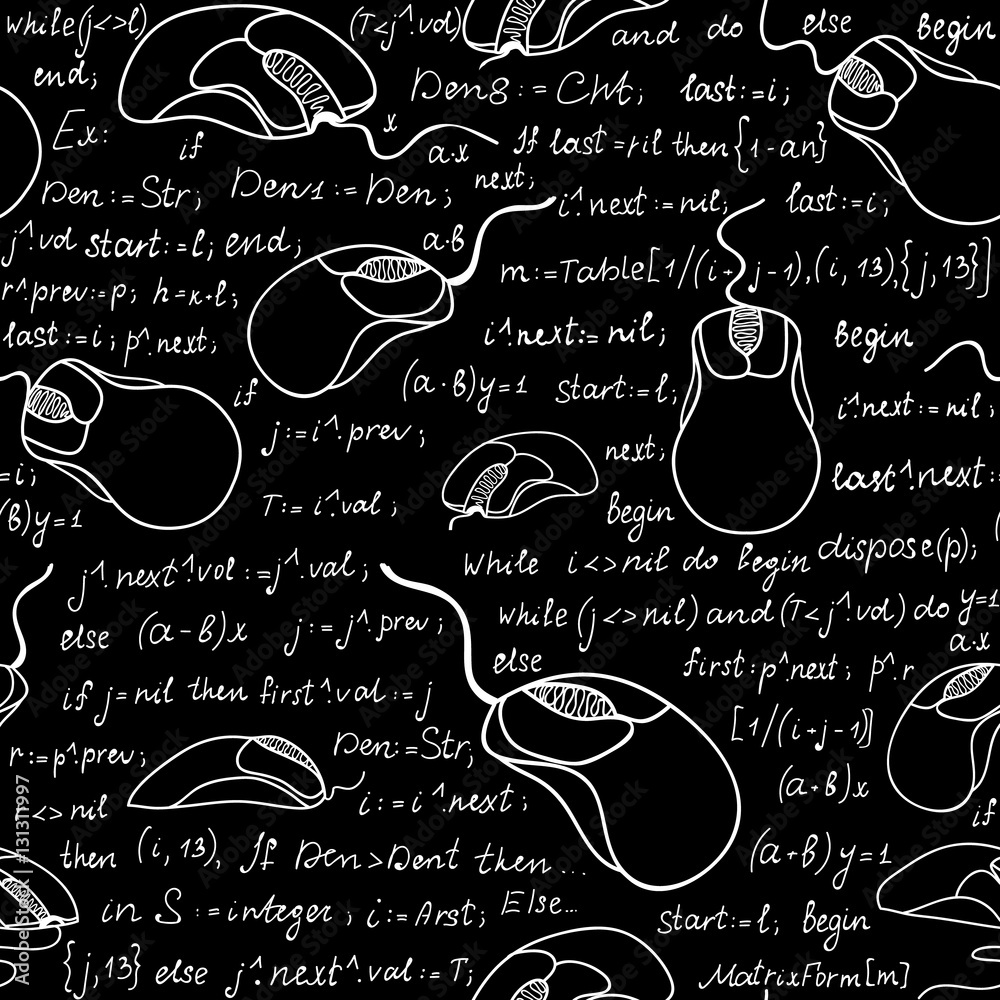 while(j<>l)
(T<j^.val)
and do
else
Begin
end;
Den8:=Cht;
last:=i;
Ex:
if
x
a·x
If last=nil then{1-an}
next;
Den:=Str;
Den1:=Den;
i^.next:=nil;
last:=i;
j^.vol start:=l; end;
a·b
m:=Table[1/(i+j-1),(i,13),{j,13}]
r^.prev:=p; h=k+l;
last:=i; p^.next;
i^.next:=nil;
Begin
if
(a·b)y=1
start:=l;
i^.next:=nil;
j:=i^.prev;
next;
=i;
last^.next:=
b)y=1
T:=i^.val;
Begin
j^.next^.vol:=j^.val;
While i<>nil do begin
dispose(p);
else (a-b)x j:=j^.prev;
while(j<>nil)and(T<j^.vol)do
y=1
a·x
else
first:p^.next; p^.r
if j=nil then first^.val:=j
[1/(i+j-1)]
r:=p^.prev;
Den:=Str;
(a+b)x
<>nil
i:=i^.next;
if
then (i,13), If Den>Dent then...
(a+b)y=1
in S:=integer; i:=Arst; Else...
start:=l; Begin
{j,13} else j^.next^.val:=T;
MatrixForm[m]
Adobe Stock | #131311997